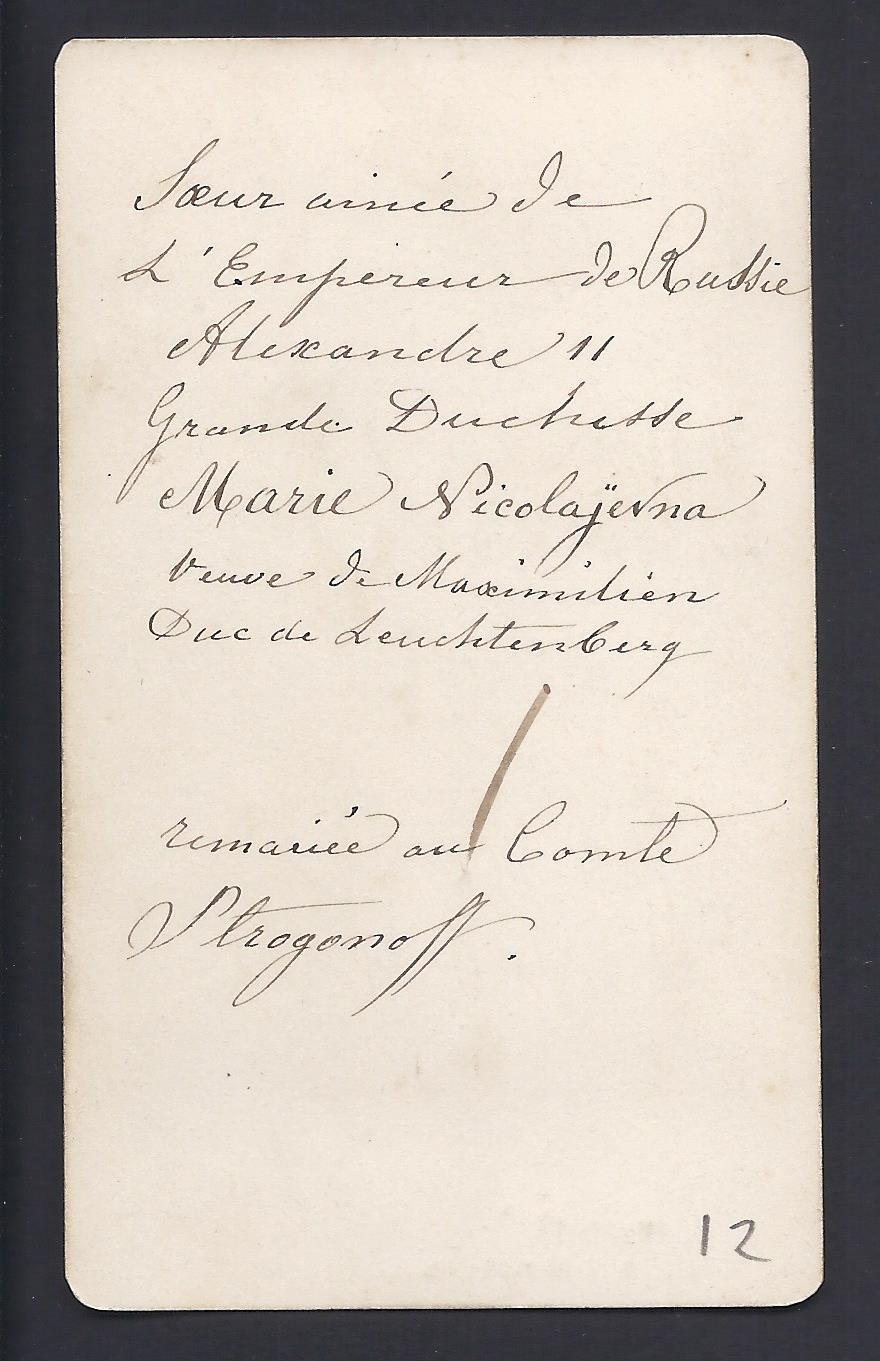 Sœur ainée de
L'Empereur de Russie
Alexandre II
Grande Duchesse
Marie Nicolajevna
Veuve de Maximilien
Duc de Leuchtenberg
remariée au Comte
Strogonoff.
12